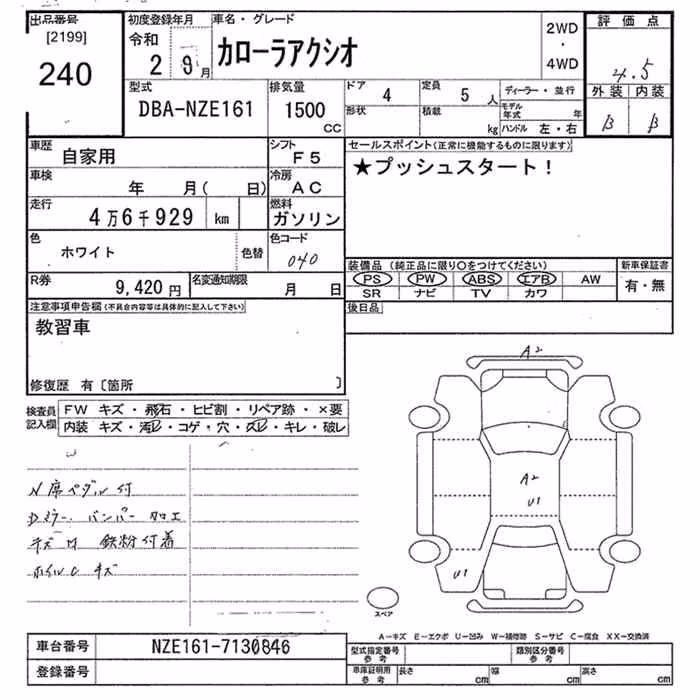 出品番号 初度登録年月 車名・グレード 2WD 評価点
[2199] 令和 ・
240 2 9月 カローラアクシオ 4WD 4.5
型式 排気量 ドア 定員 ディーラー・並行 外装 内装
DBA-NZE161 1500 CC 4 5 人 モデル年式 年 B B
形状 積載 kg ハンドル 左・右
車歴 自家用 シフト F5 セールスポイント(正常に機能するものに限ります)
車検 年 月( 日) 冷房 AC ★プッシュスタート！
走行 4万6千929 km 燃料 ガソリン
色 ホワイト 色替 色コード 040
装備品 (純正品に限り○をつけてください) 新車保証書
R券 9,420円 名変通知期限 月 日 PS PW ABS エアB AW 有・無
SR ナビ TV カワ
注意事項申告欄(不具合内容等は具体的に記入して下さい) 後日品
教習車
修復歴 有〔箇所 〕
検査員記入欄 FW キズ・飛石・ヒビ割・リペア跡・×要
内装 キズ・汚レ・コゲ・穴・スレ・キレ・破レ
A2
N席ペダル付
Dミラー バンパー加工
キズ 鉄粉付着
ホイルC キズ
A2
U1
U1
スペア
A-キズ E-エクボ U-凹み W-補修跡 S-サビ C-腐食 XX-交換済
車台番号 NZE161-7130846 型式指定番号 参考 類別区分番号 参考
登録番号 車庫証明用 参考 長さ cm 幅 cm 高さ cm